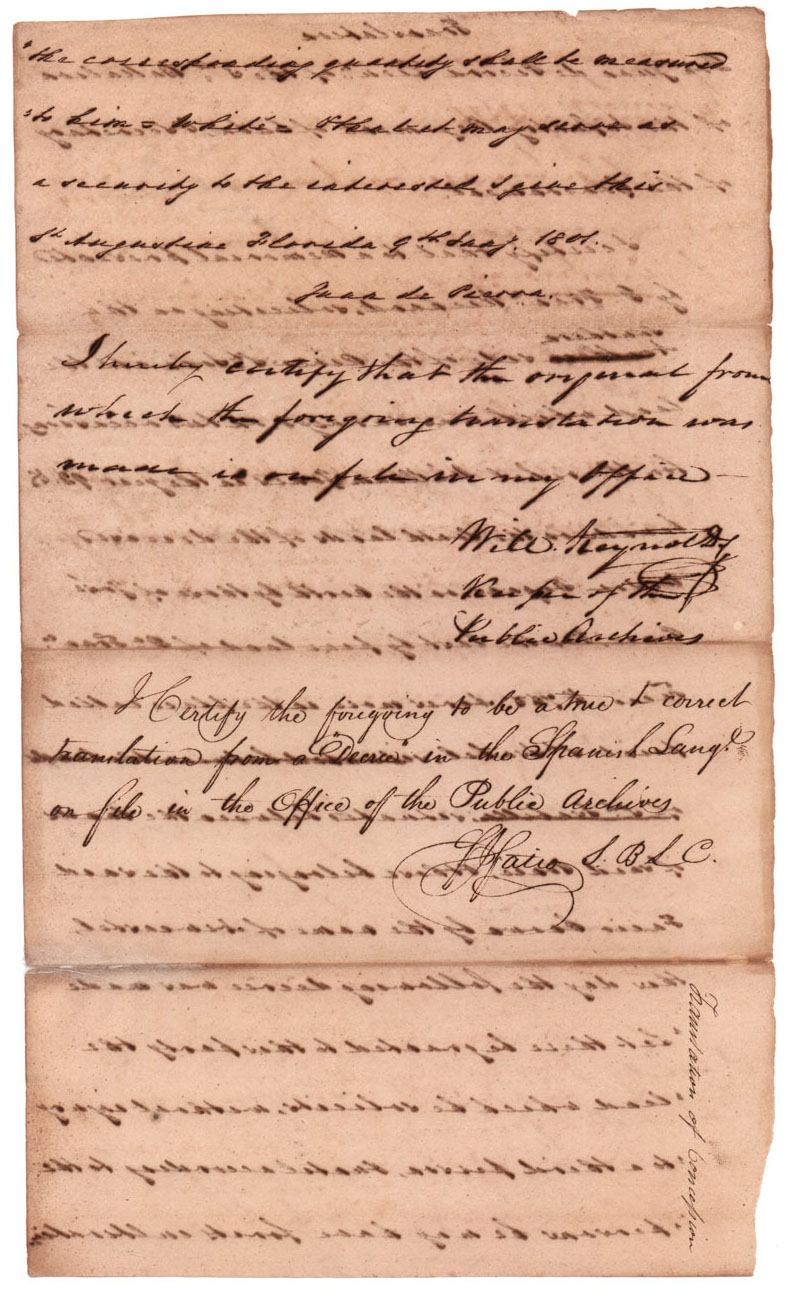 "the corresponding quantity shall be measured
"to him = White = & that it may serve as
a security to the interested I give this
St Augustine Florida 9th Jany 1801.
Juan de Pierra.
I hereby certify that the original from
which the foregoing translation was
made is on file in my Office —
Will. Reynolds
Keeper of the
Public Archives
I Certify the foregoing to be a true & correct
translation from a "Decree" in the Spanish Lange
on file in the Office of the Public Archives
F J Fatio S. B L C.
Translation of Concession